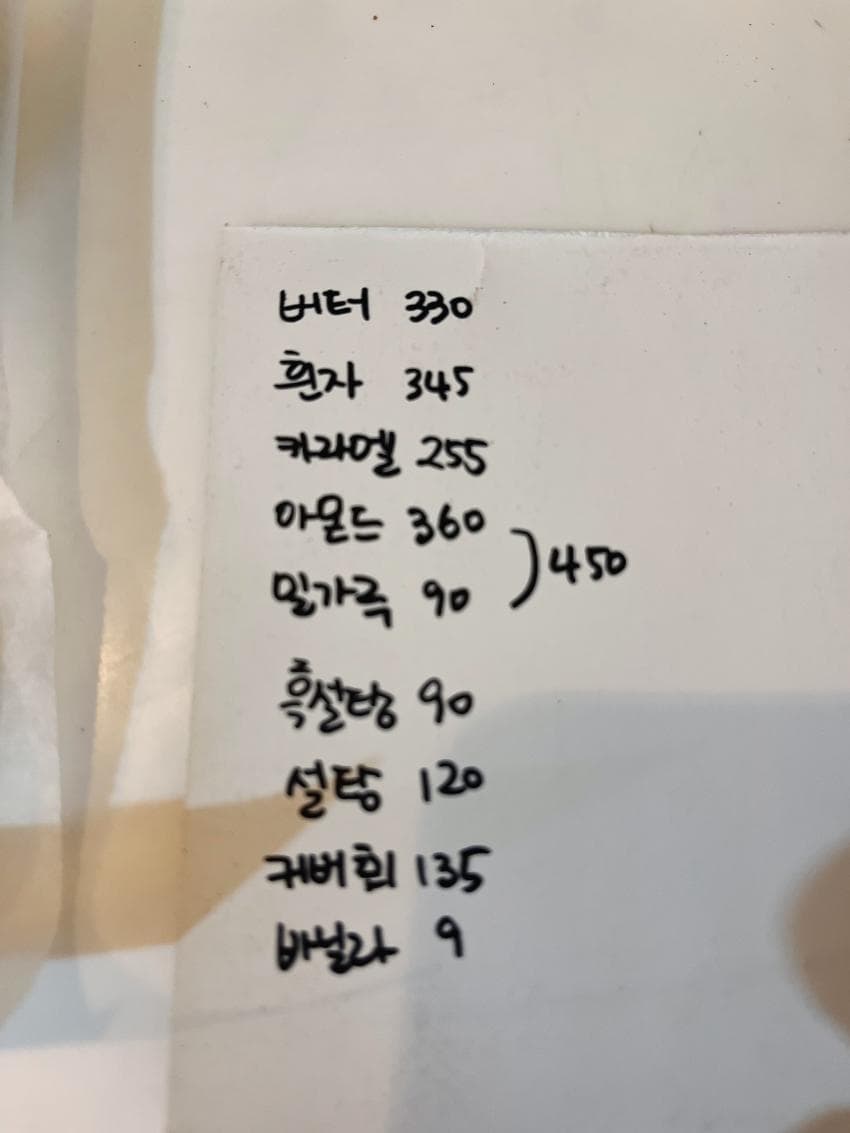 버터 330
흰자 345
카라멜 255
아몬드 360
밀가루 90
) 450
흑설탕 90
설탕 120
커버춰 135
바닐라 9